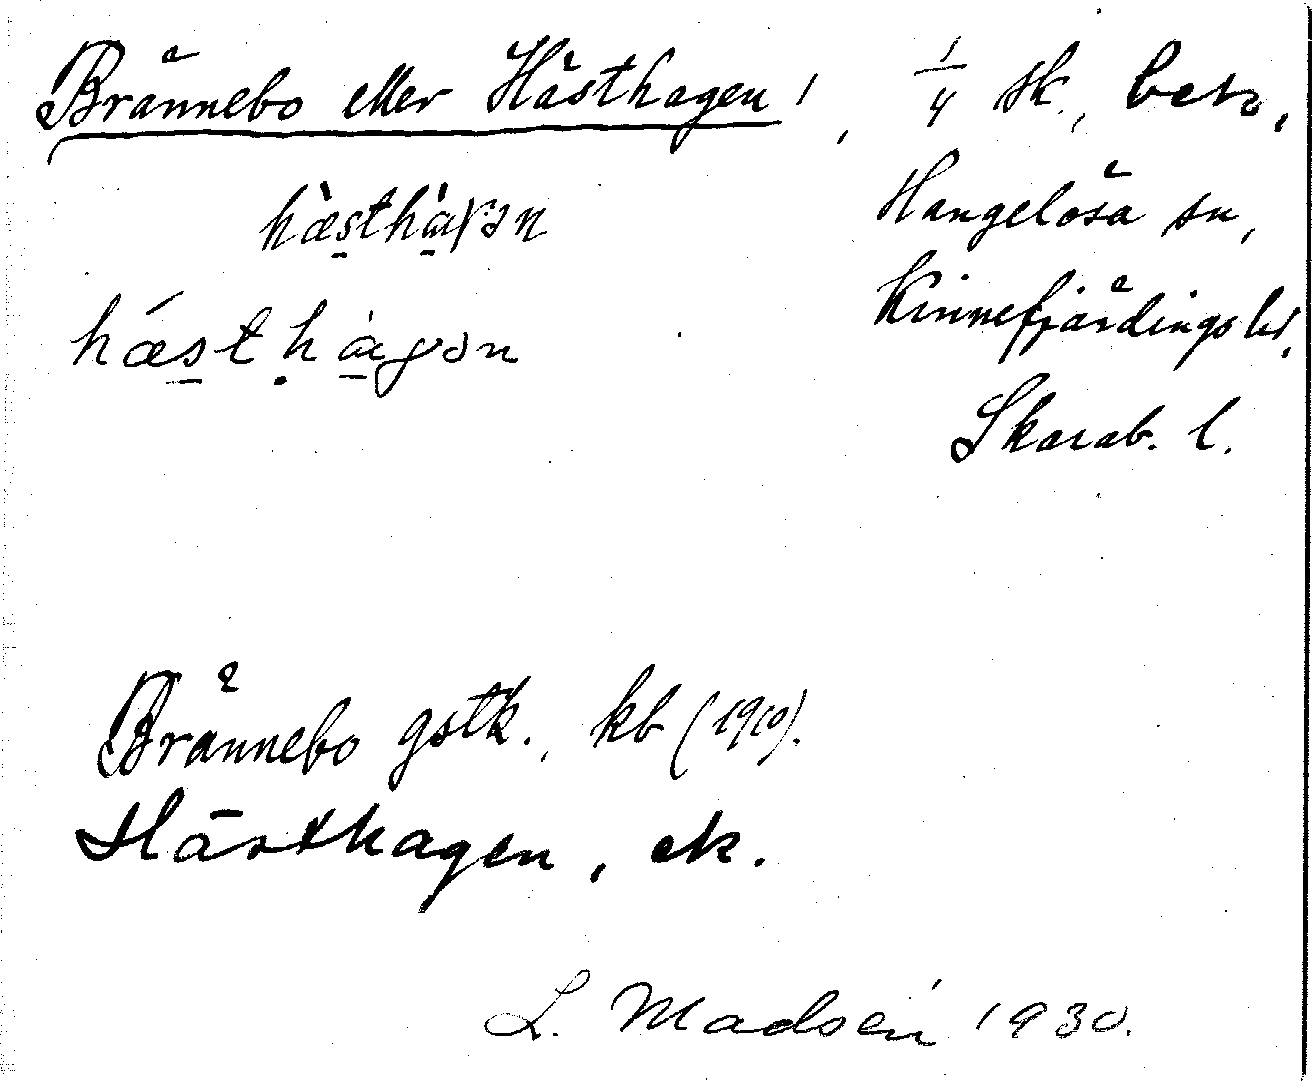 Brännebo eller Hästhagen!, 1/4 sk., beb.,
Hangelösa sn,
Kinnefjärdings hd,
Skarab. l.
hæ̀sthàɣən
hǽsthàgən
Brännebo gstk., kb (1910).
Hästhagen, ek.
L. Madsén 1930.